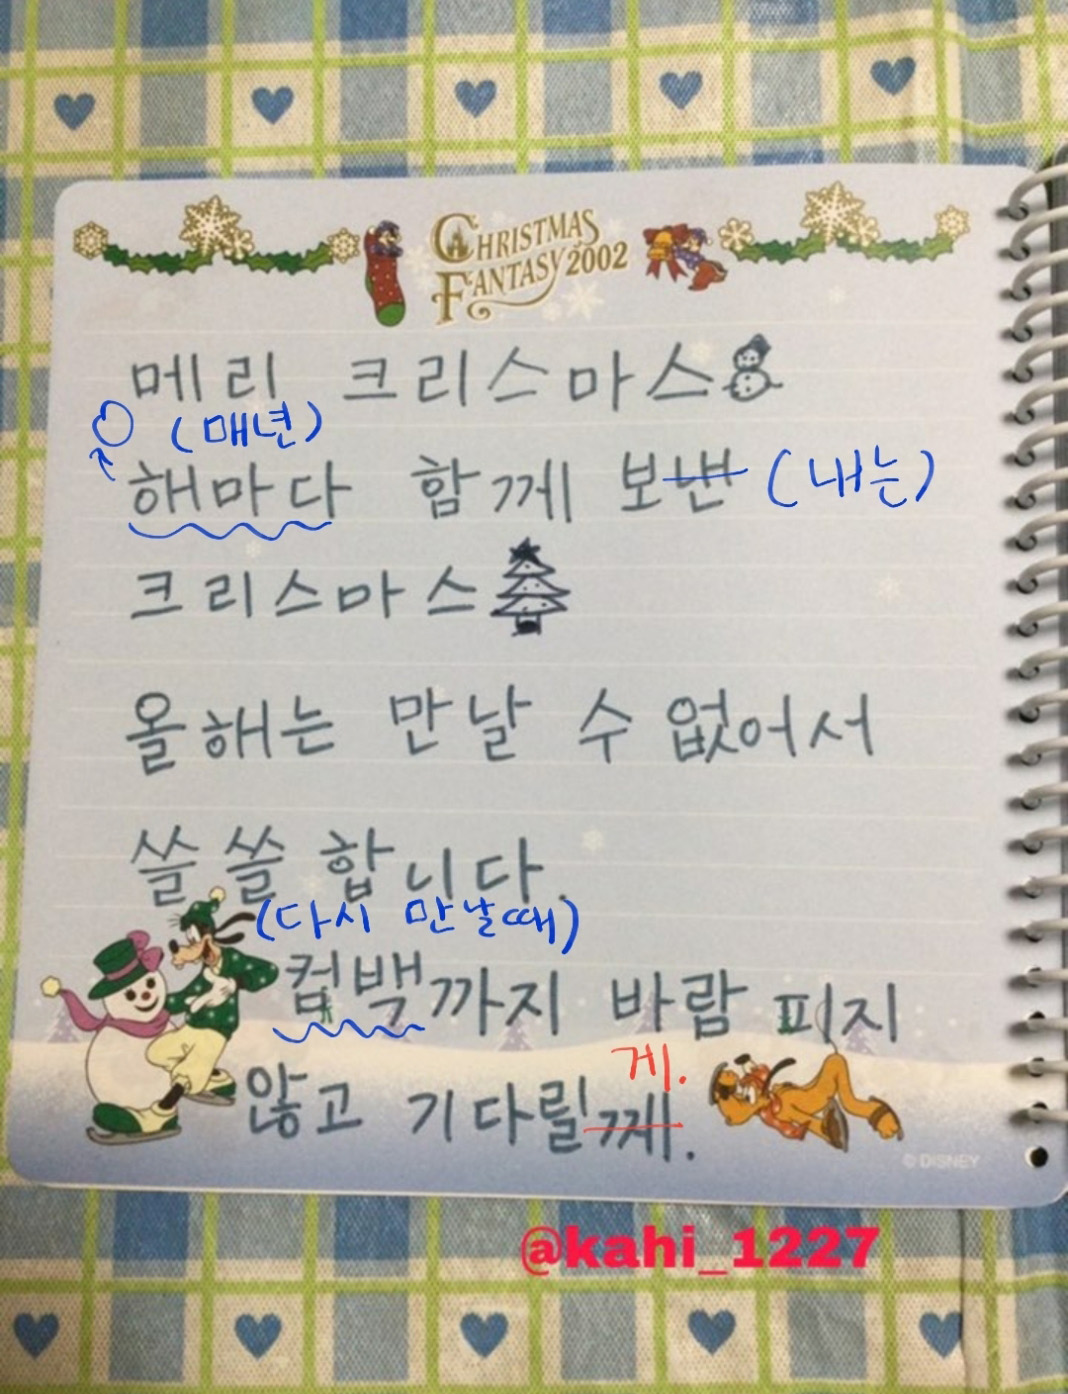 CHRISTMAS
FANTASY 2002
메리 크리스마스
(매년)
해마다 함께 보낸 (내는)
크리스마스
올해는 만날 수 없어서
쓸쓸합니다.
(다시 만날때)
컴백까지 바람 피지
게.
않고 기다릴께.
© DISNEY
@kahi_1227